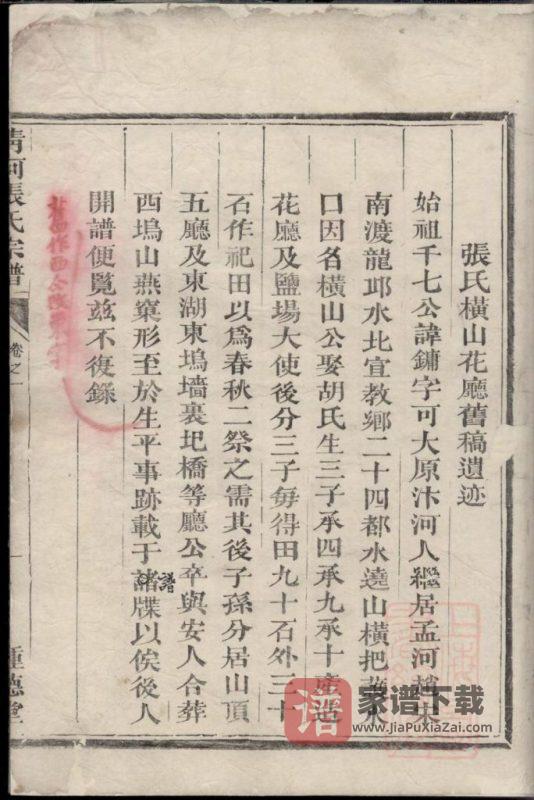 張氏橫山花廳舊稿遺迹
始祖千七公諱鏞字可大原汴河人繼居孟河趙宋
南渡龍邱水北宣教鄉二十四都水遶山橫把蓋水
口因名橫山公娶胡氏生三子承四承九承十產造
花廳及鹽場大使後分三子每得田九十石外三十
石作祀田以爲春秋二祭之需其後子孫分居山頂
五廳及東湖東塢墻裏圯橋等廳公卒與安人合葬
西塢山燕窠形至於生平事跡載于諸牒以俟後人
譜
開譜便覧玆不復錄
舊西作西今改
清河張氏宗譜
卷之一
一
種德堂
谱
家谱下载
www.JiaPuXiaZai.com